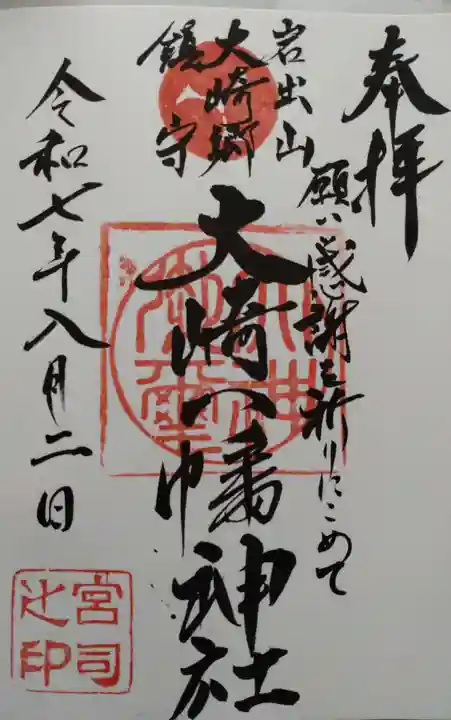 奉拝
願い感謝を祈りにこめて
岩出山
大崎郷
鎮守
大崎八幡神社
令和七年八月二日
宮司
辻印